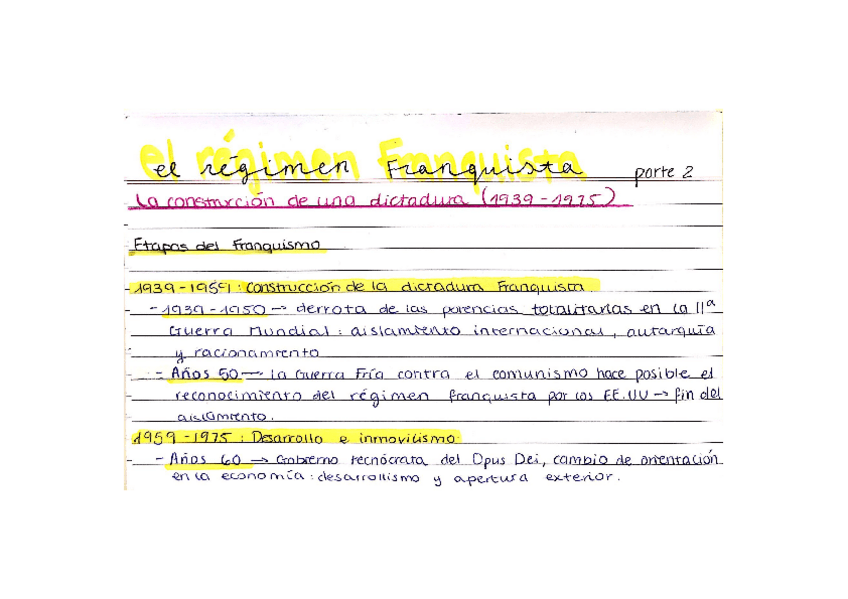 el régimen Franquista parte 2
La construcción de una dictadura (1939-1975)
Etapas del Franquismo
1939-1959: Construcción de la dictadura Franquista.
- 1939-1950 → derrota de las potencias totalitarias en la IIª
Guerra Mundial: aislamiento internacional, autarquía
y racionamiento
- Años 50 → La Guerra Fría contra el comunismo hace posible el
reconocimiento del régimen franquista por los EE.UU → fin del
aislamiento.
1959-1975: Desarrollo e inmovilismo.
- Años 60 → Gobierno tecnócrata del Opus Dei, cambio de orientación
en la economía: desarrollismo y apertura exterior.